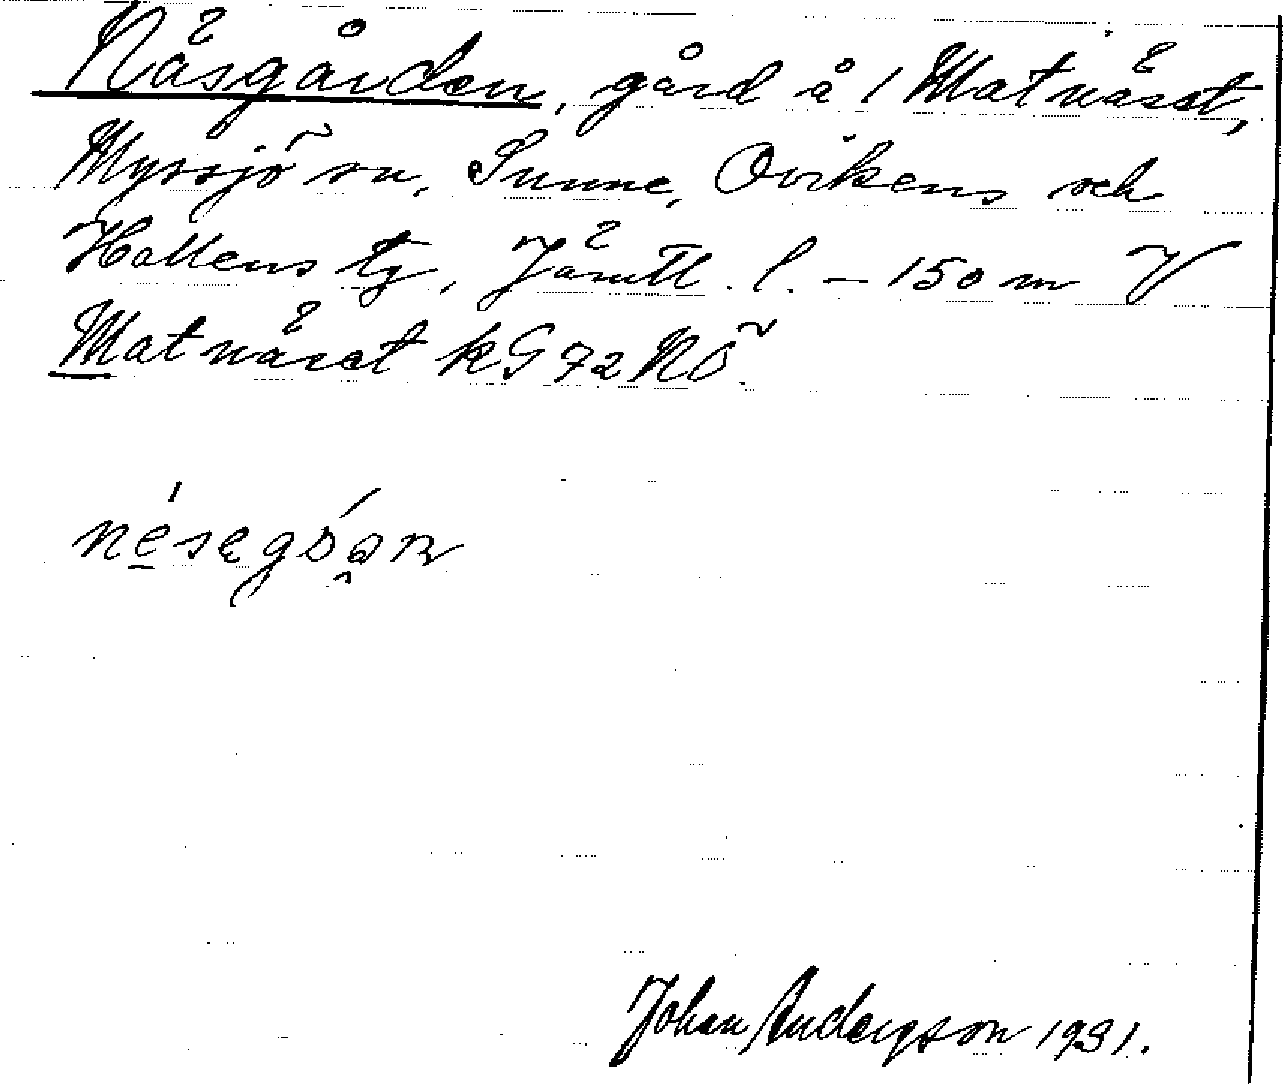 Näsgården, gård å 1 Matnäset,
Myssjö sn, Sunne, Ovikens och
Hallens tg, Jämtl. l. – 150 m V
Matnäset kG 72 NÖ.
Johan Anderson 1931.